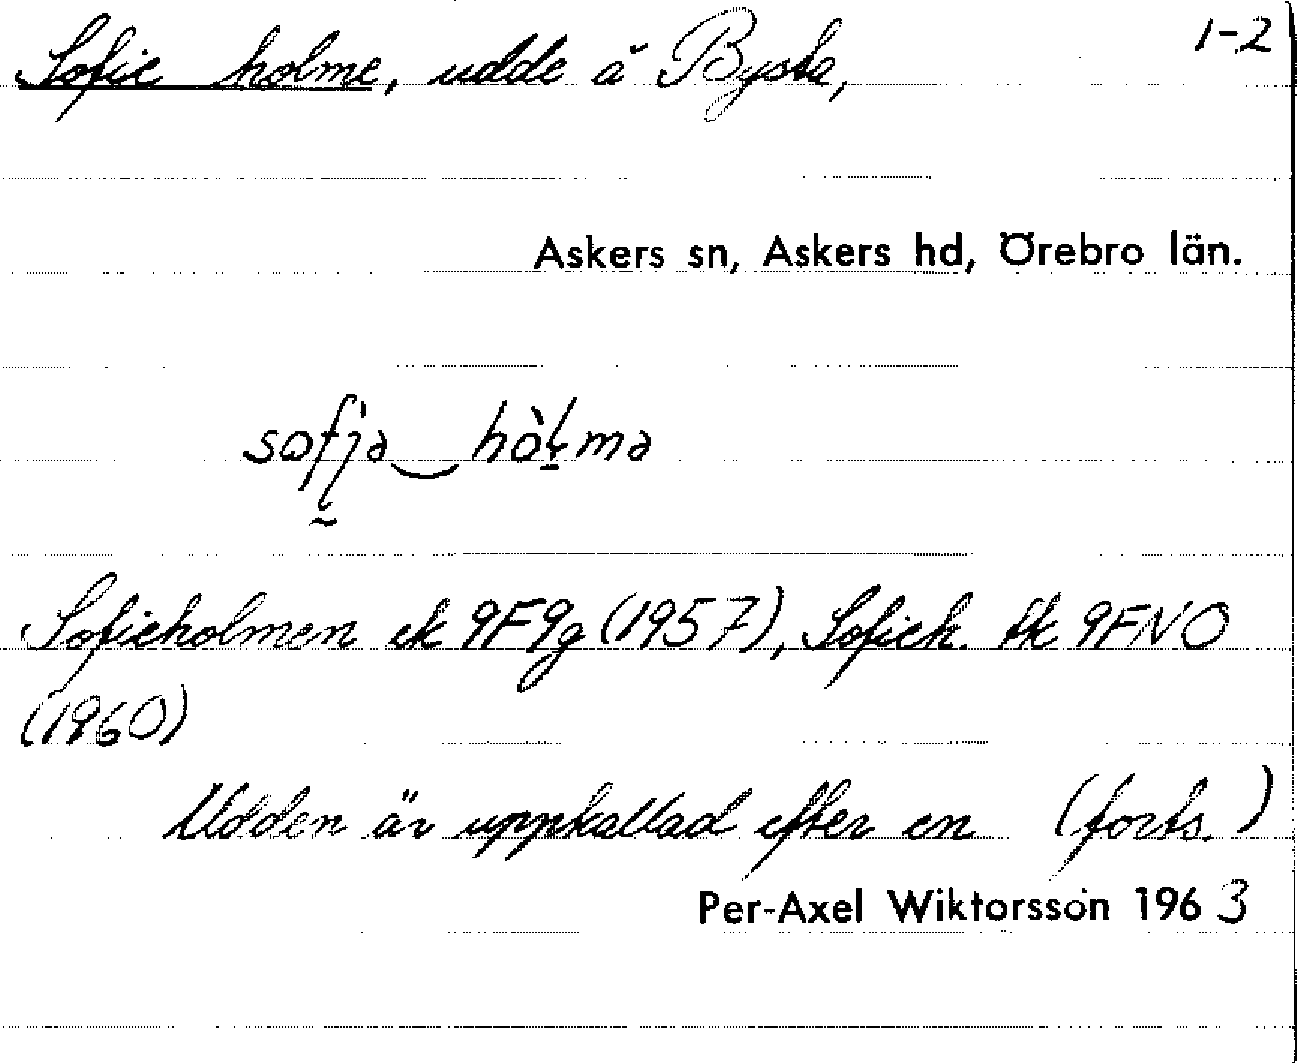 Sofie holme, udde å Bysta, 1-2
Askers sn, Askers hd, Örebro län.
sofja‿hòḷmə
Sofieholmen ek 9F9g (1957), Sofieh. tk 9FNO
(1960)
Udden är uppkallad efter en (forts.)
Per-Axel Wiktorsson 1963